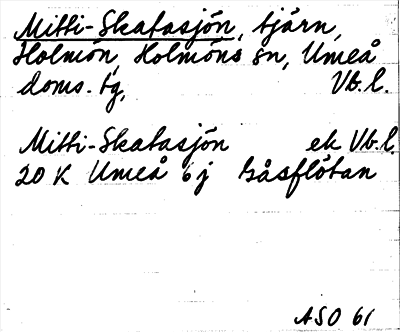 Mitti-Skatasjön, tjärn,
Holmön, Holmöns sn, Umeå
doms. tg, Vb.l.
Mitti-Skatasjön ek Vb.l.
20 K Umeå 6 j Gåsflötan
ASO 61